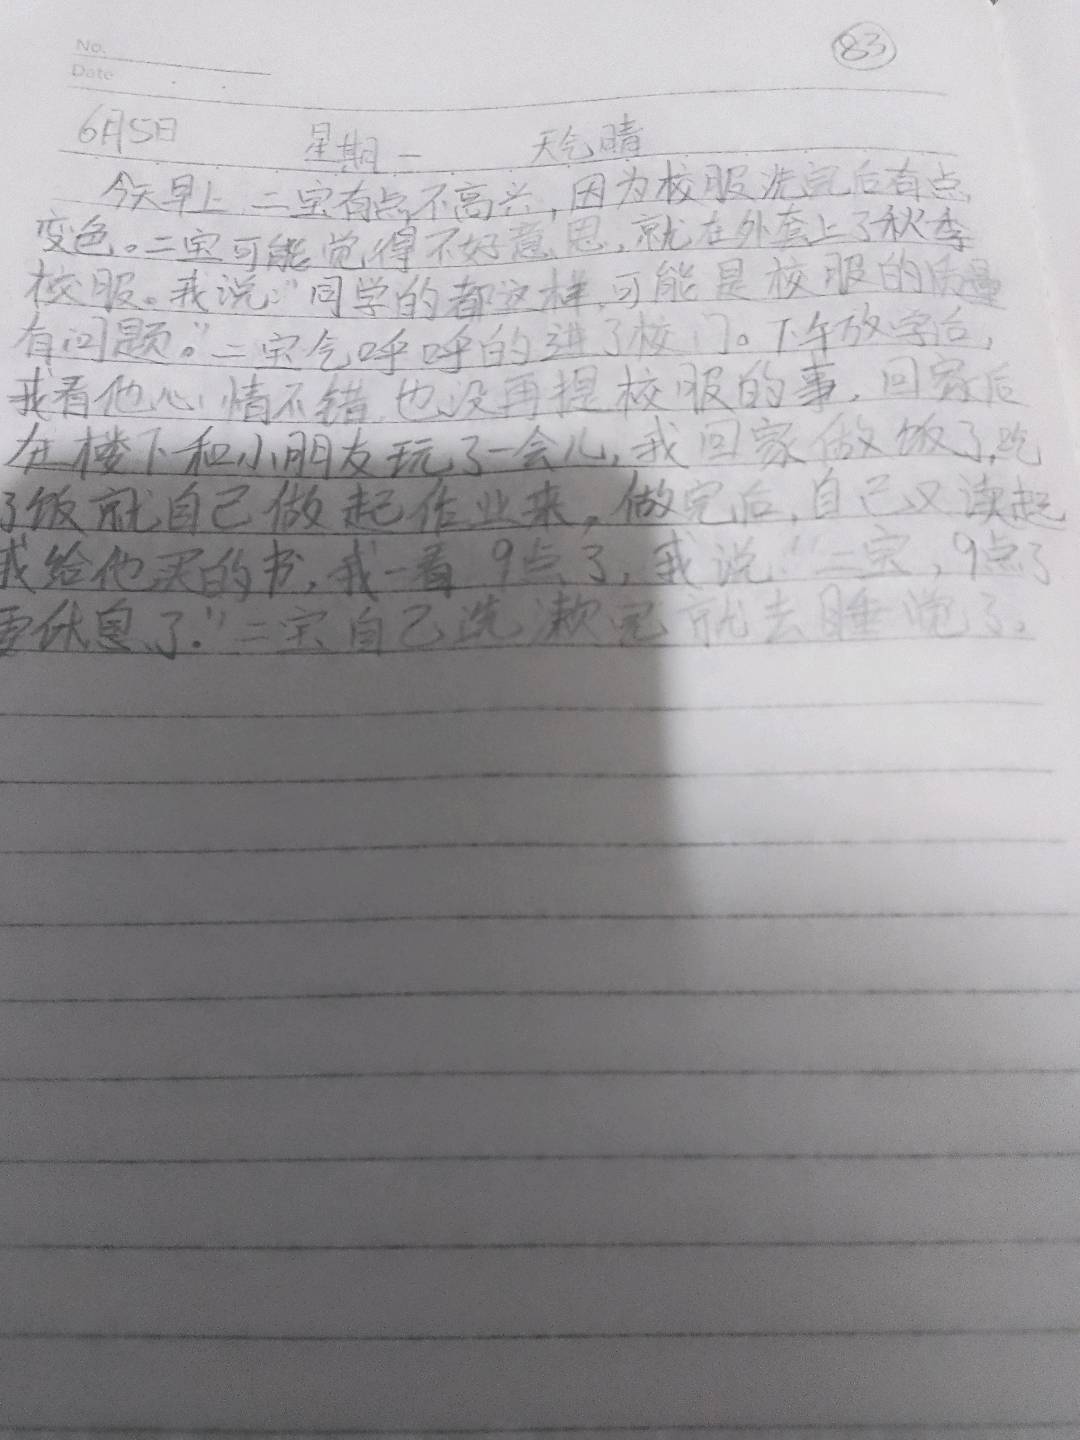 83
No.
Date
6月5日 星期一 天气晴
今天早上,二宝有点不高兴,因为校服洗完后有点
变色。二宝可能觉得不好意思,就在外套上了秋季
校服。我说:“同学的都这样,可能是校服的质量
有问题。”二宝气呼呼的进了校门。下午放学后,
我看他心情不错,也没再提校服的事,回家后
在楼下和小朋友玩了一会儿,我回家做饭了,吃
了饭就自己做起作业来,做完后,自己又读起
我给他买的书,我一看9点了,我说:“二宝,9点了
要休息了。”二宝自己洗漱完就去睡觉了。